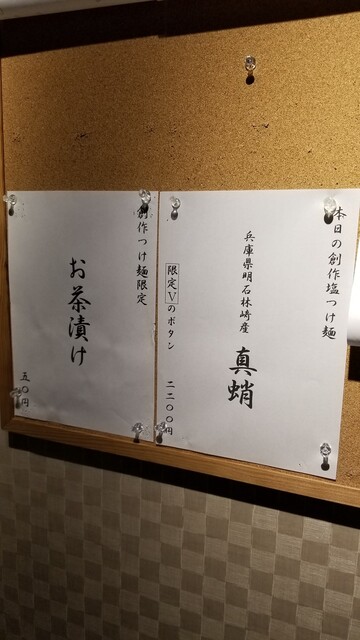 本日の創作塩つけ麺
兵庫県明石林崎産
真蛸
限定Vのボタン
二二〇〇円
創作つけ麺限定
お茶漬け
五〇円